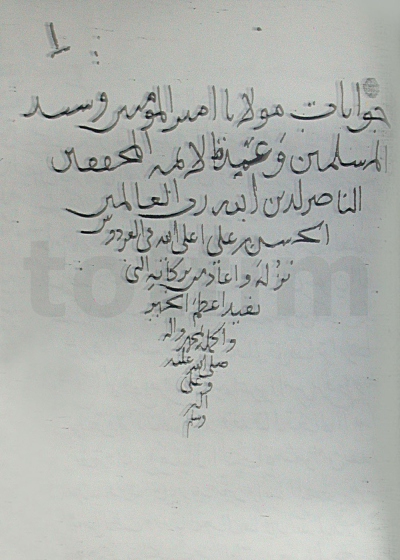 جوابات مولانا امير المؤمنين وسيد
المسلمين وعمدة الائمه المحققين
الناصر لدين الله رب العالمين
الحسن بن علي اعلى الله في الفردوس
نزله واعاد من بركاته التي
تفيد اعظم الخير
واكمله بمحمد واله
صلى الله عليه
وعلى
اله
وسلم